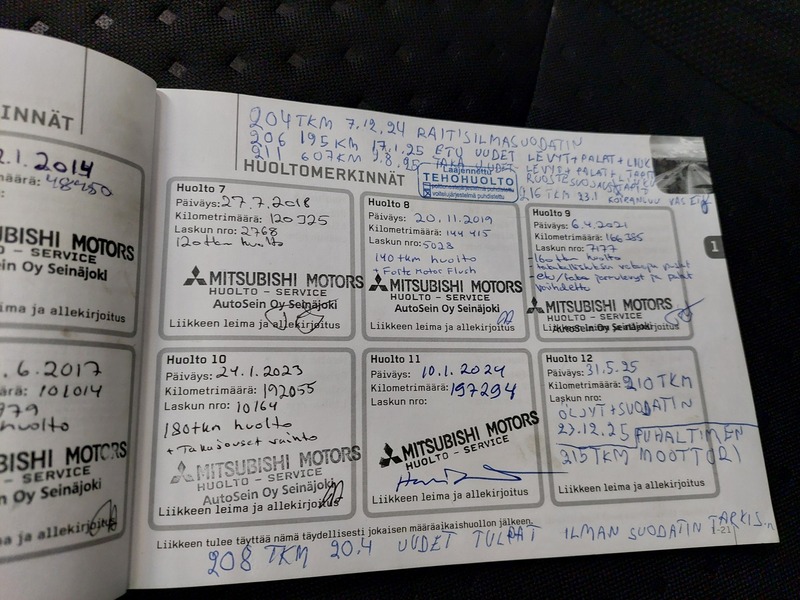 INNÄT
2.1.2014
määrä: 48450
UBISHI MOTORS
- SERVICE
ein Oy Seinäjoki
a ja allekirjoitus
.6.2017
ärä: 101014
979
huolto
BISHI MOTORS
- SERVICE
in Oy Seinäjoki
a ja allekirjoitus
204 TKM 7.12.24 RAITISILMASUODATIN
206 195 KM 17.1.25 ETU UUDET LEVYT+PALAT+LIUK
211 607 KM 9.8.25 TAKA UUDET LEVYT+PALAT+
216 TKM
HUOLTOMERKINNÄT
Laajennettu
TEHOHUOLTO
1
Huolto 7
Päiväys: 27.7.2018
Kilometrimäärä: 120325
Laskun nro: 2768
120tkm huolto
MITSUBISHI MOTORS
HUOLTO - SERVICE
AutoSein Oy Seinäjoki
Liikkeen leima ja allekirjoitus
Huolto 8
Päiväys: 20.11.2019
Kilometrimäärä: 144415
Laskun nro: 5023
140tkm huolto
+ Forte Motor Flush
MITSUBISHI MOTORS
HUOLTO - SERVICE
AutoSein Oy Seinäjoki
Liikkeen leima ja allekirjoitus
Huolto 9
Päiväys: 6.4.2021
Kilometrimäärä: 166385
Laskun nro: 7177
- 160tkm huolto
- etu/taka jarrulevyt ja palat
vaihdettu
MITSUBISHI MOTORS
HUOLTO - SERVICE
AutoSein Oy Seinäjoki
Liikkeen leima ja allekirjoitus
Huolto 10
Päiväys: 24.1.2023
Kilometrimäärä: 192055
Laskun nro: 10164
180tkm huolto
+ Takajouset vaihto
MITSUBISHI MOTORS
HUOLTO - SERVICE
AutoSein Oy Seinäjoki
Liikkeen leima ja allekirjoitus
Huolto 11
Päiväys: 10.1.2024
Kilometrimäärä: 197294
Laskun nro:
MITSUBISHI MOTORS
HUOLTO - SERVICE
Liikkeen leima ja allekirjoitus
Huolto 12
Päiväys: 31.5.25
Kilometrimäärä: 210TKM
Laskun nro:
ÖLJYT+SUODATIN
23.12.25 PUHALTIMEN
215TKM MOOTTORI
Liikkeen leima ja allekirjoitus
Liikkeen tulee täyttää nämä täydellisesti jokaisen määräaikaishuollon jälkeen.
1-21
208 TKM 20.4 UUDET TULPAT ILMAN SUODATIN TARKIS.